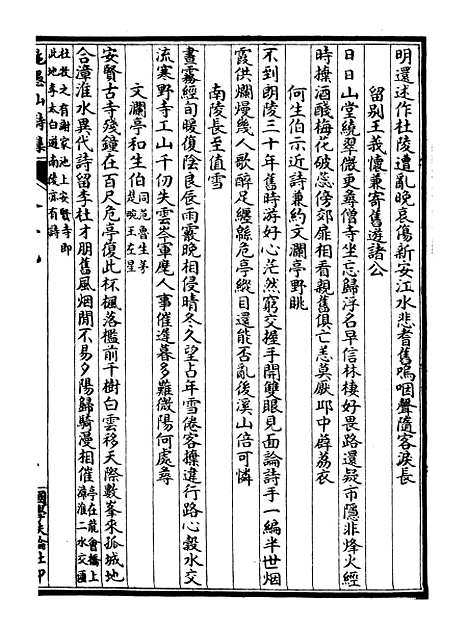 明還述作杜陵遭亂晚哀傷新安江水悲耆舊嗚咽聲隨客淚長
留别王義懷兼寄舊遊諸公
日日山堂繞翠微更尋僧寺坐忘歸浮名早信林棲好畏路還疑市隱非烽火經
時據酒醆梅花破蕊傍郊扉相看親舊俱亡恙莫厭邱中辟荔衣
何生伯示近詩兼約文瀾亭野眺
不到朗陵三十年舊時游好心茫然窮交握手開雙眼見面論詩手一編半世烟
霞供爛熳幾人歌醉足纏緜危亭縱目還能否亂後溪山倍可憐
南陵長至值雪
晝霧經旬暖復陰良辰雨霰晚相侵晴冬久望占年雪倦客擽違行路心穀水交
流寒野寺工山千仞失雲岑軍麾人事催遲暮多難微陽何處尋
文瀾亭和生伯
同范魯生茅
楚畹王左星
安賢古寺殘鐘在百尺危亭復此杯楓落檻前千樹白雲移天際數峯來孤城地
合漳淮水異代詩留李杜才朋舊風烟閒不易夕陽歸騎漫相催
亭在龍會橋上
漳淮二水交匯
此地李太白遊南陵亦有詩
杜牧之有謝家池上安賢寺即